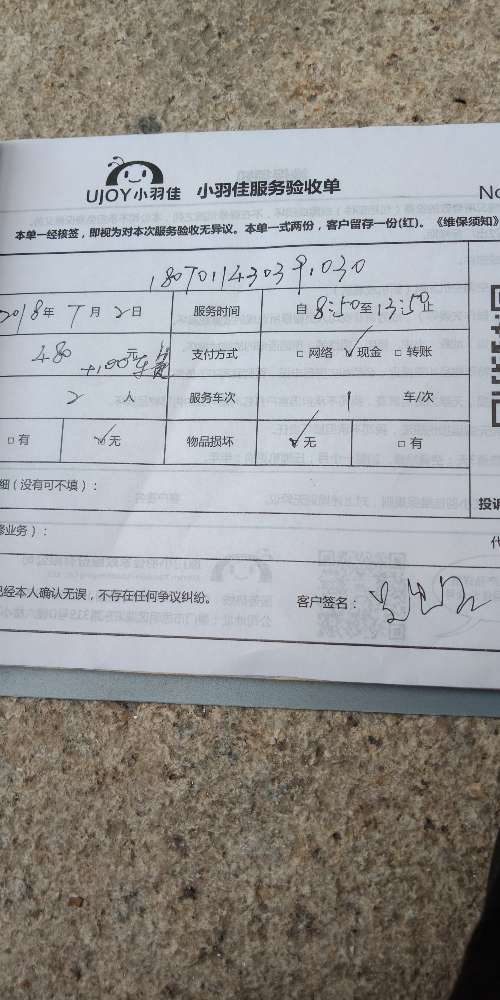 UJOY小羽佳 小羽佳服务验收单
No
本单一经核签，即视为对本次服务验收无异议。本单一式两份，客户留存一份(红)。《维保须知》
2018年 7月 2日 服务时间 自 8:50至13:50止
480元 +100车费 支付方式 □网络 ✓现金 □转账
2 人 服务车次 1 车/次
□有 ✓无 物品损坏 ✓无 □有
细（没有可不填）：
投诉
修业务）：
代
已经本人确认无误，不存在任何争议纠纷。 客户签名：